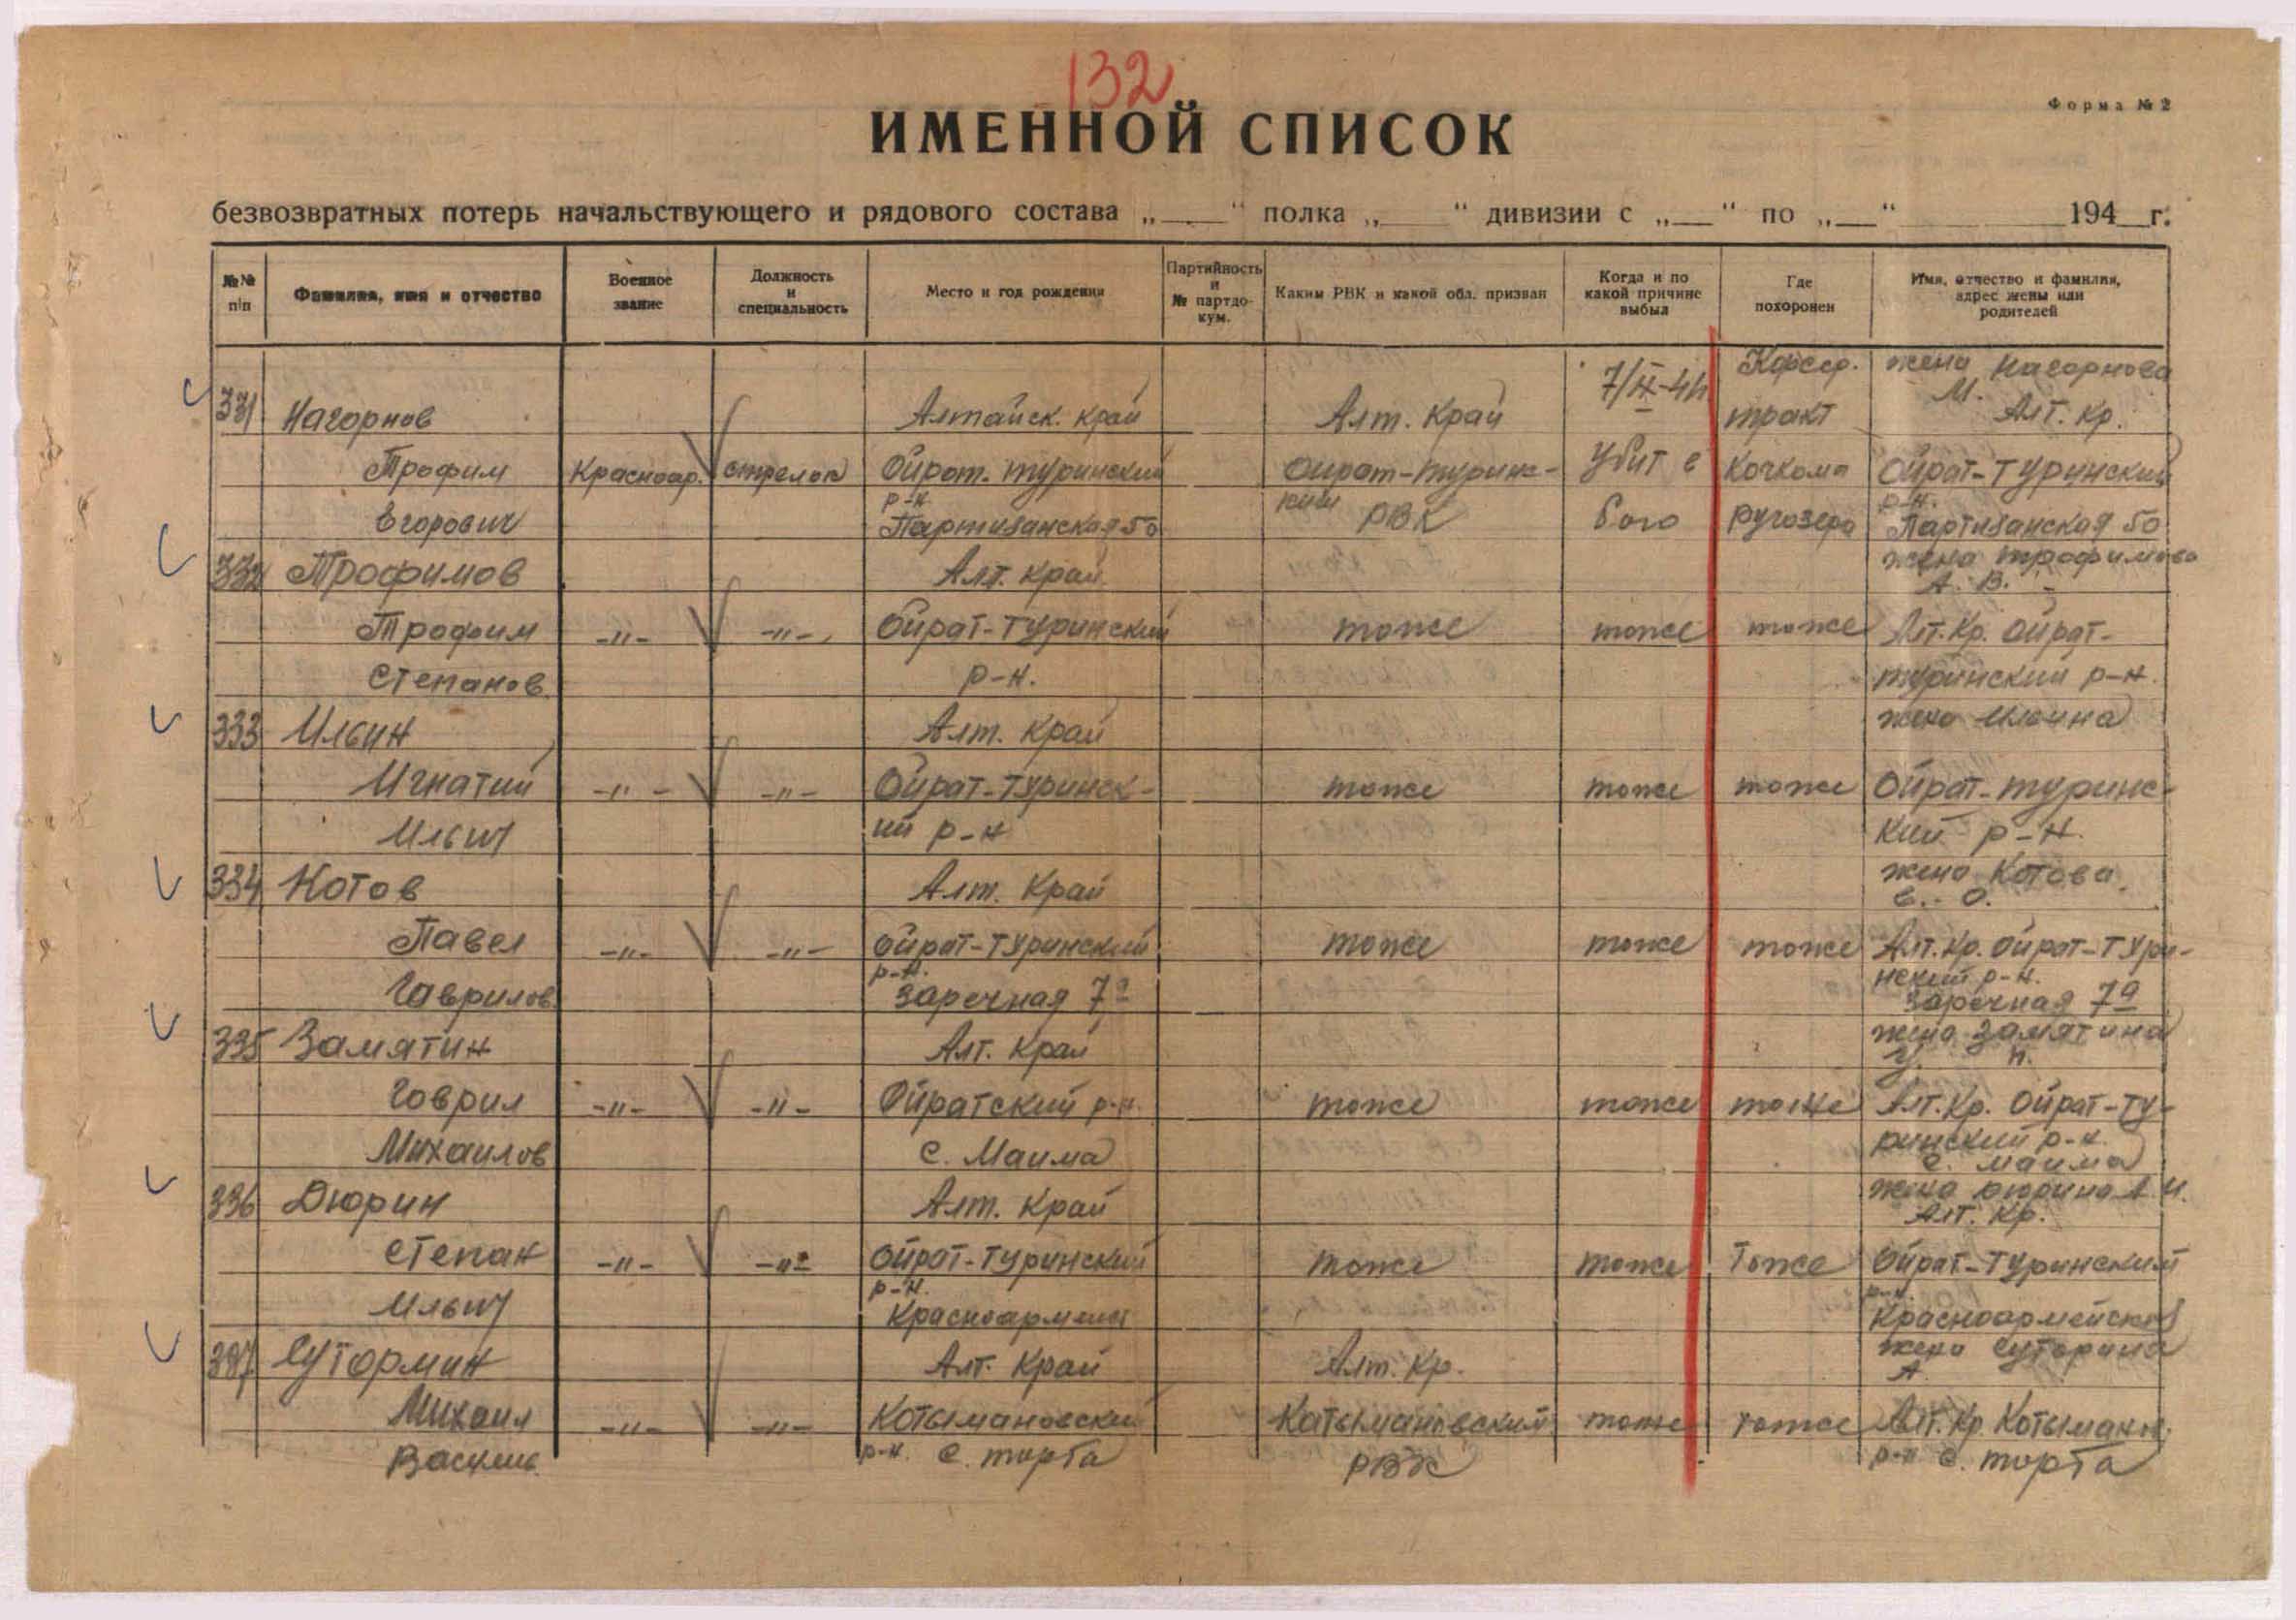 132
Форма № 2
ИМЕННОЙ СПИСОК
безвозвратных потерь начальствующего и рядового состава „ “ полка „ “ дивизии с „ “ по „ “ 194 г.
№№ п/п
Фамилия, имя и отчество
Военное звание
Должность и специальность
Место и год рождения
Партийность и № партдокум.
Каким РВК и какой обл. призван
Когда и по какой причине выбыл
Где похоронен
Имя, отчество и фамилия, адрес жены или родителей
7/IX-44 тракт жена Нагорнова
М.
331 Нагорнов Алтайск. край Алт. Край Алт. Кр.
Трофим Красноар. стрелок Ойрот. Туринский Ойрат-Туринс- Убит в Кочкома Ойрат-Туринский
р-н. кий р-н.
Егорович Партизанская 50 РВК бою Ругозеро Партизанская 50
332 Трофимов Алт. край жена Трофимова
А. В.
Трофим -"- -"- Ойрат-Туринский тоже тоже тоже Алт. Кр. Ойрат-
Степанов р-н. туринский р-н.
333 Ильин Алт. Край жена Ильина
Игнатий -"- -"- Ойрат-Туринск- тоже тоже тоже Ойрат-туринс-
Ильич ий р-н кий р-н.
334 Котов Алт. Край жена Котова
Е. О.
Павел -"- -"- Ойрат-Туринский тоже тоже тоже Алт. Кр. Ойрат-Тури-
р-н. нский р-н.
Гаврилов Заречная 7а Заречная 7а
335 Замятин Алт. Край жена Замятина
Гаврил -"- -"- Ойратский р-н. тоже тоже тоже Алт. Кр. Ойрат-Ту-
ринский р-н.
Михаилов с. Маима с. Маима
336 Дюрин Алт. Край жена Дюрина А. И.
Алт. Кр.
Степан -"- -"- Ойрат-Туринский тоже тоже Тоже Ойрат-Туринский
р-н. р-н.
Ильич Красноармейс Красноармейская
337 Сутормин Алт. Край Алт. Кр. жена Суторина
А.
Михаил -"- -"- Котымановский Катымановский тоже тоже Алт. Кр. Котыман.
Василь р-н. с. торба РВК р-н с. торба